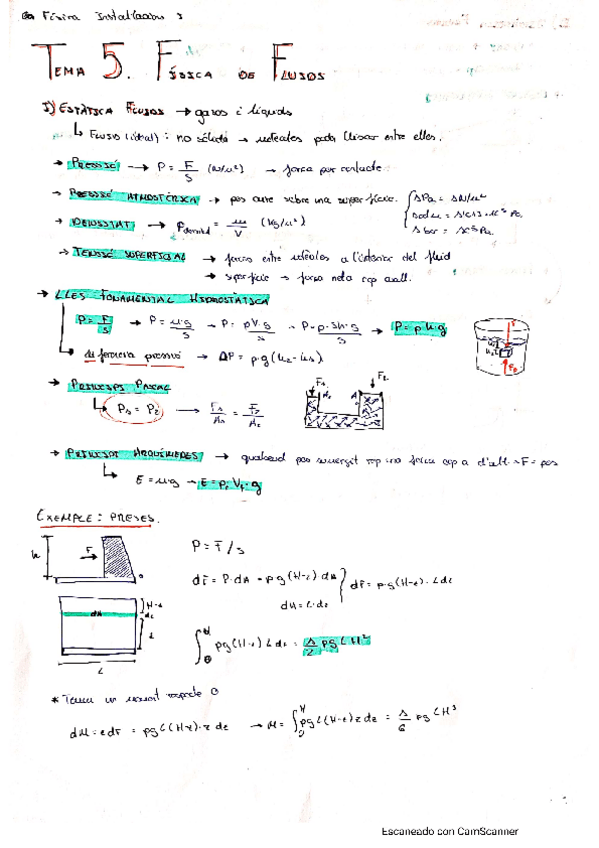 Física Instal·lacions 1
TEMA 5. FÍSICA DE FLUIDS
I) ESTÀTICA FLUIDS → gasos i líquids
↳ FLUID (ideal): no sòlids → molècules poden lliscar entre elles.
→ PRESSIÓ → P = F/S (N/m²) → força per contacte
→ PRESSIÓ ATMOSFÈRICA → pes aire sobre una superfície. { 1Pa = 1N/m²
1 atm = 1'013·10⁵ Pa.
→ DENSITAT → ρ = m/V (kg/m³) 1 bar = 10⁵ Pa.
→ TENSIÓ SUPERFICIAL → forces entre molècules a l'interior del fluid
→ superfície → força neta cap avall.
→ LLEI FONAMENTAL HIDROSTÀTICA
P = F/S → P = m·g/S → P = ρV·g/S → P = ρ·Sh·g/S → P = ρ·h·g
↳ diferència pressió → ΔP = ρ·g(h₂-h₁)
→ PRINCIPI PASCAL F₁ F₂
↳ P₁ = P₂ → F₁/A₁ = F₂/A₂ A₁ A₂
→ PRINCIPI ARQUÍMEDES → qualsevol cos submergit rep una força cap a dalt → F = pes
↳ E = m·g → E = ρ·V·g
EXEMPLE: PRESES.
H F P = F/S
dF = P·dA = ρg(H-z) dA } dF = ρg(H-z)·Ldz
dA = L·dz
dA H-z dz z
∫₀ᴴ ρg(H-z) L dz = 1/2 ρg L H²
L
* Tenim un moment respecte O
dM = zdF = ρgL(H-z)·z dz → M = ∫₀ᴴ ρgL(H-z) z dz = 1/6 ρg L H³
Escaneado con CamScanner